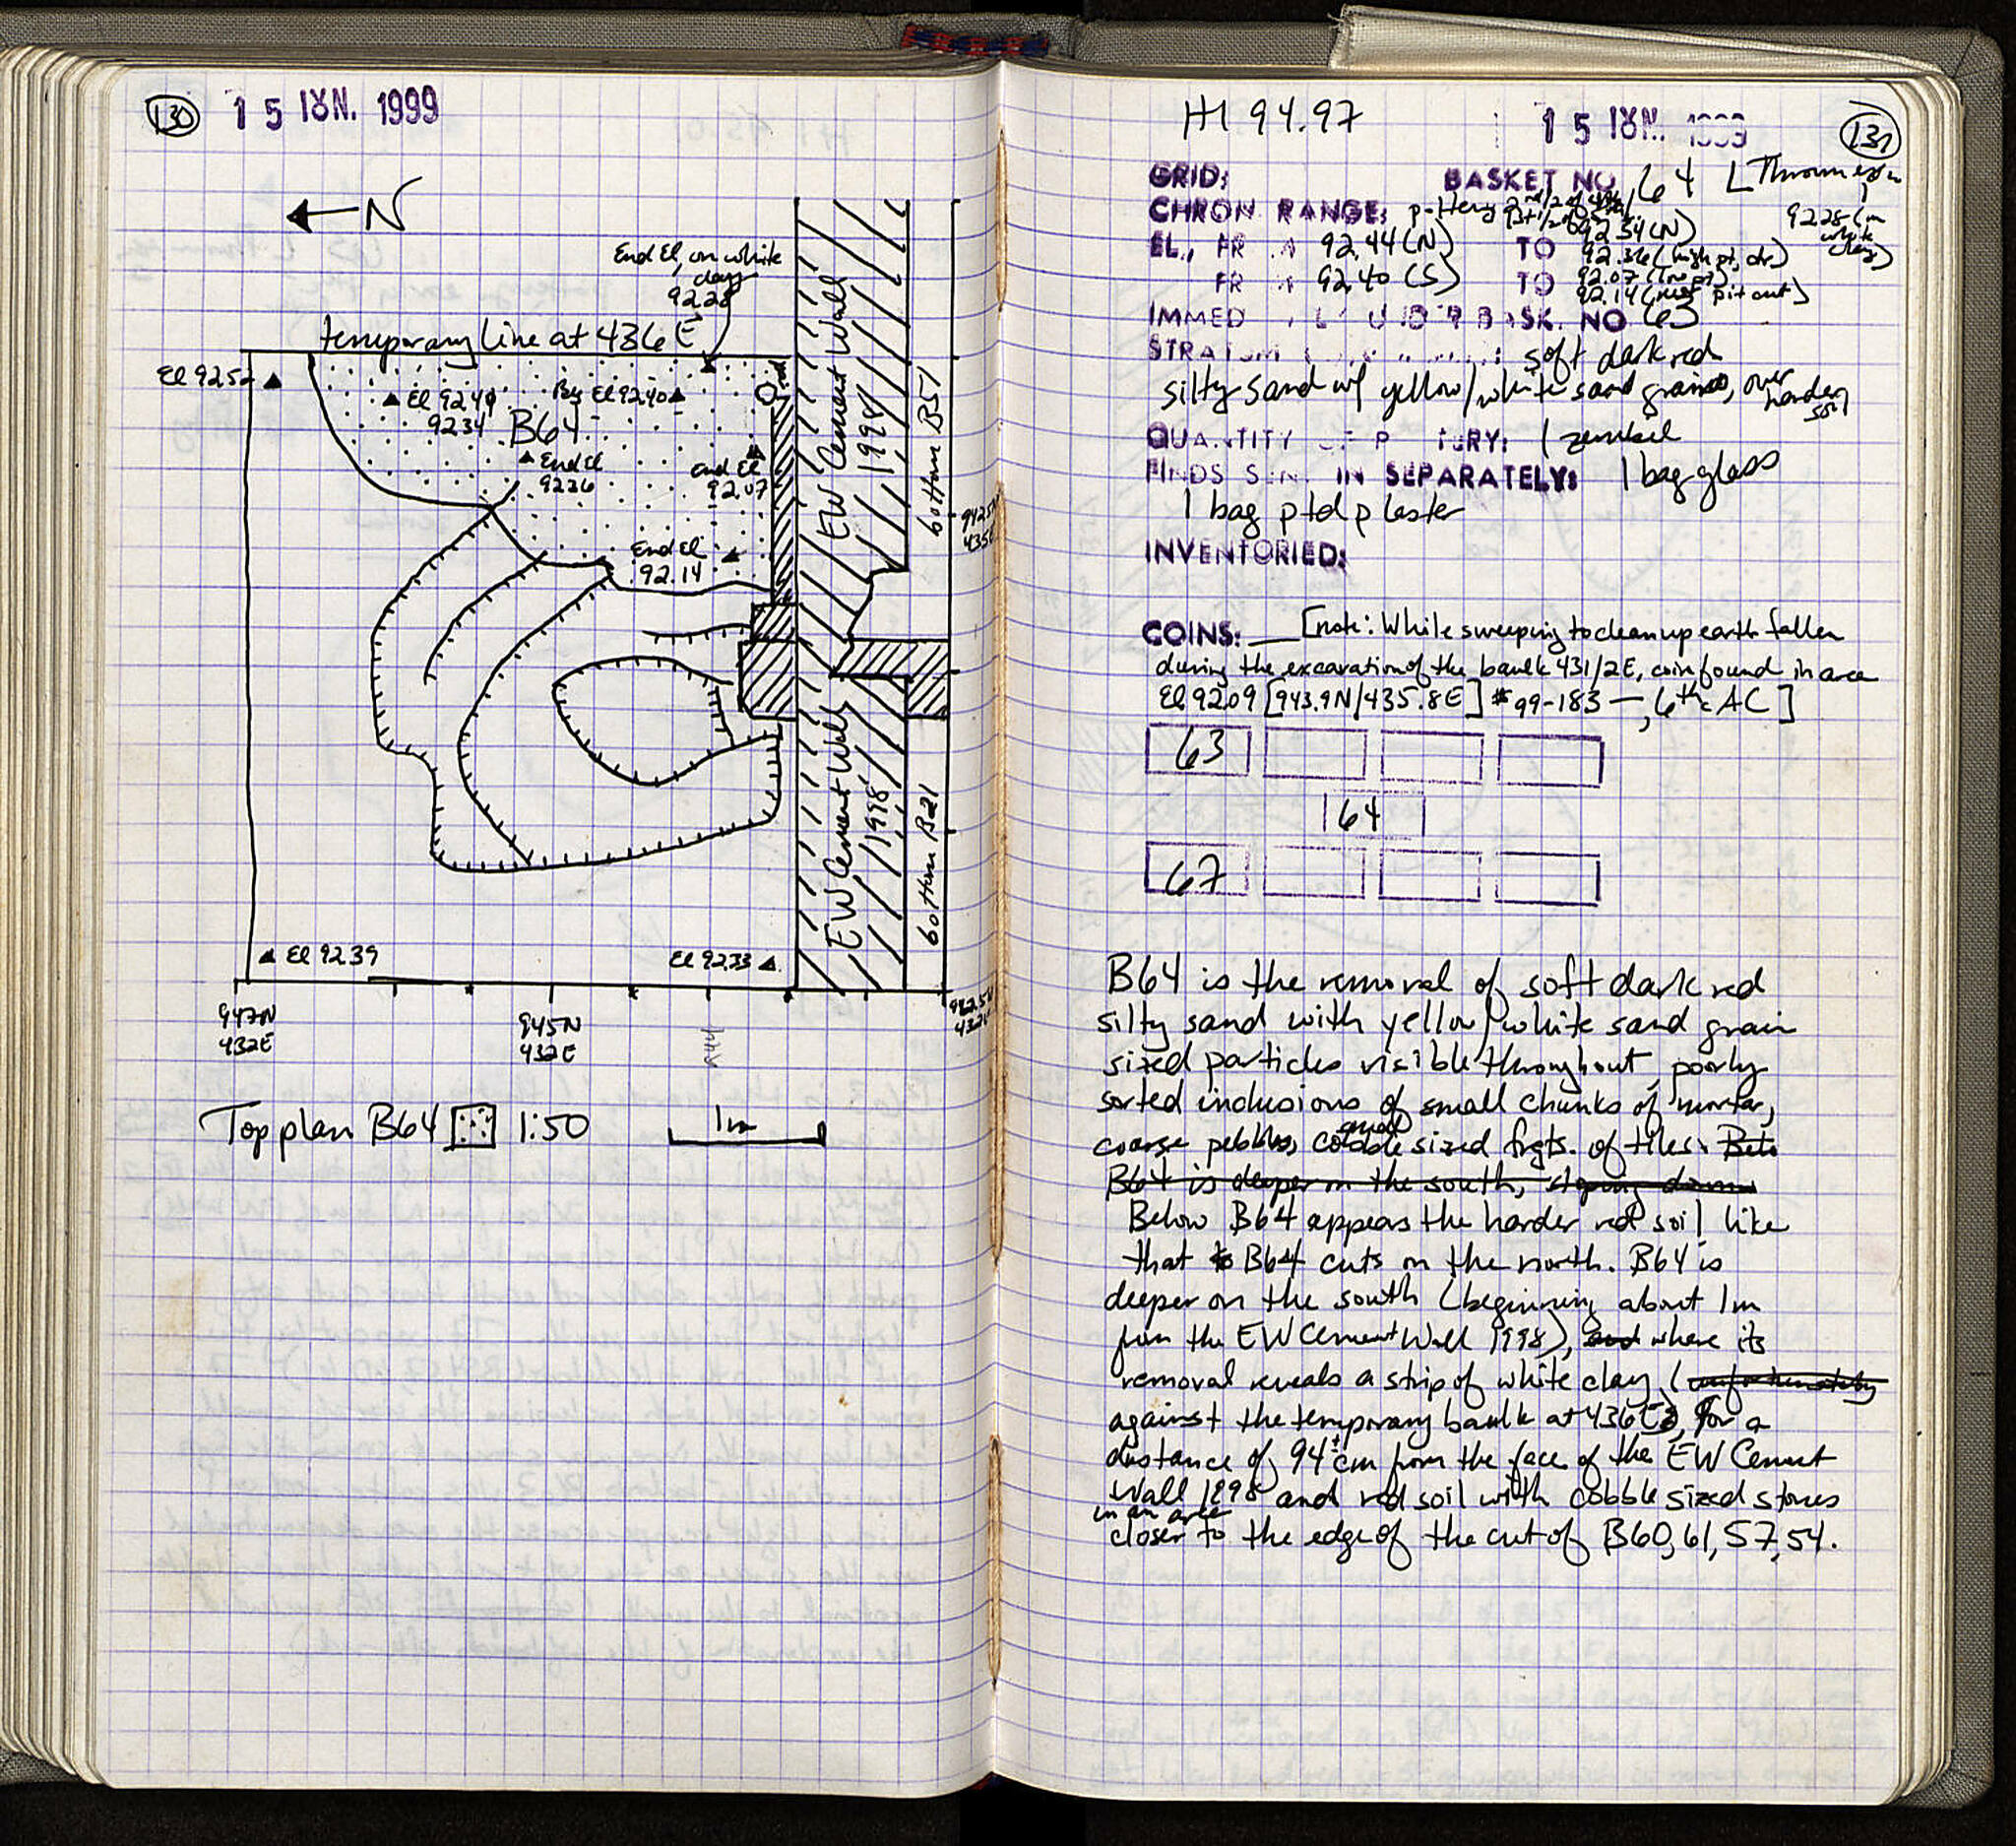 130 15 ΙΟΥΝ. 1999
N
End El, on white
clay
92.28
temporary line at 436E
El 92.52
El 92.40
92.34
Beg El 92.40
B64
End El
92.36
End El
92.07
End El
92.14
EW Cement Wall
1998
bottom B51
942.5N
435E
EW Cement Wall
1998
bottom B21
El 92.39
El 92.33
947N
432E
945N
432E
942.5N
432E
Top plan B64 1:50 1m
HI 94.97 15 ΙΟΥΝ. 1999 131
GRID: BASKET NO 64
CHRON RANGE: pottery
EL., FR M 92.44(N) TO 92.34(N)
92.28 (on
white
clay)
92.36 (high pt, ctr.)
FR M 92.40 (S) TO 92.07 (low pt)
92.14 (near pit cut)
IMMED BASK. NO 63
STRATUM soft dark red
silty sand w/ yellow/white sand grains, over
harder
soil
QUANTITY OF POTTERY: 1 zembil
FINDS SENT IN SEPARATELY: 1 bag glass
1 bag ptd plaster
INVENTORIED:
COINS: — [note: While sweeping to clean up earth fallen
during the excavation of the baulk 431/2E, coin found in area
El 92.09 [943.9N/435.8E] #99-183 —, 6th c AC]
63
64
67
B64 is the removal of soft dark red
silty sand with yellow/white sand grain
sized particles visible throughout, poorly
sorted inclusions of small chunks of mortar,
coarse pebbles, and cobble sized frgts. of tiles. Belo
B64 is deeper on the south, sloping down
Below B64 appears the harder red soil like
that B64 cuts on the north. B64 is
deeper on the south (beginning about 1m
from the EW Cement Wall 1998), and where its
removal reveals a strip of white clay (unfortunately
against the temporary baulk at 436E), for a
distance of 94± cm from the face of the EW Cement
Wall 1998 and red soil with cobble sized stones
in an area
closer to the edge of the cut of B60, 61, 57, 54.